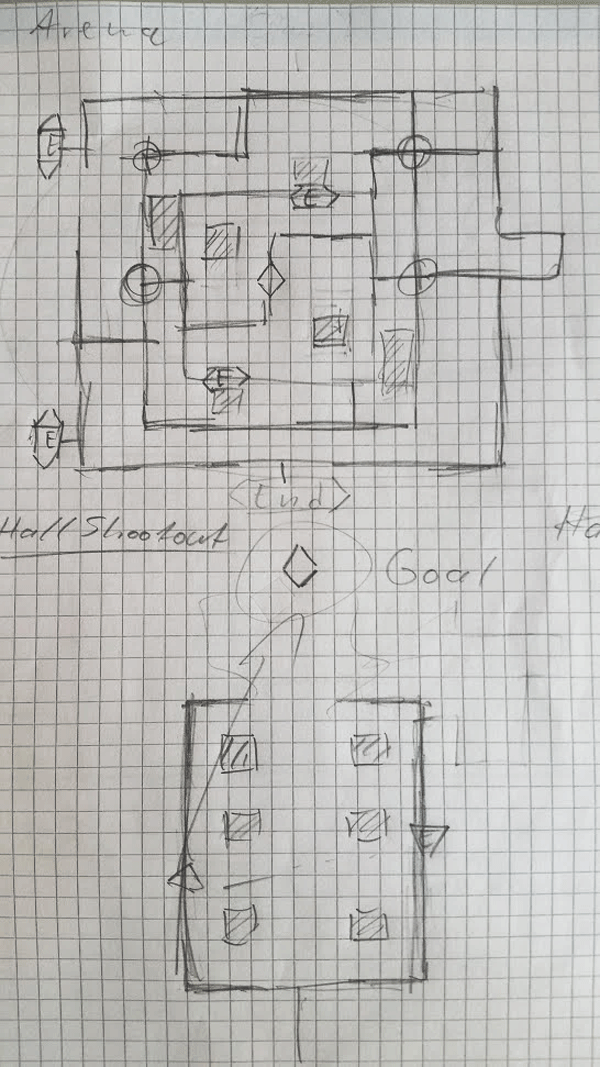 Arena
E
E
E
E
End
Hall Shootout
Ha
Goal
E